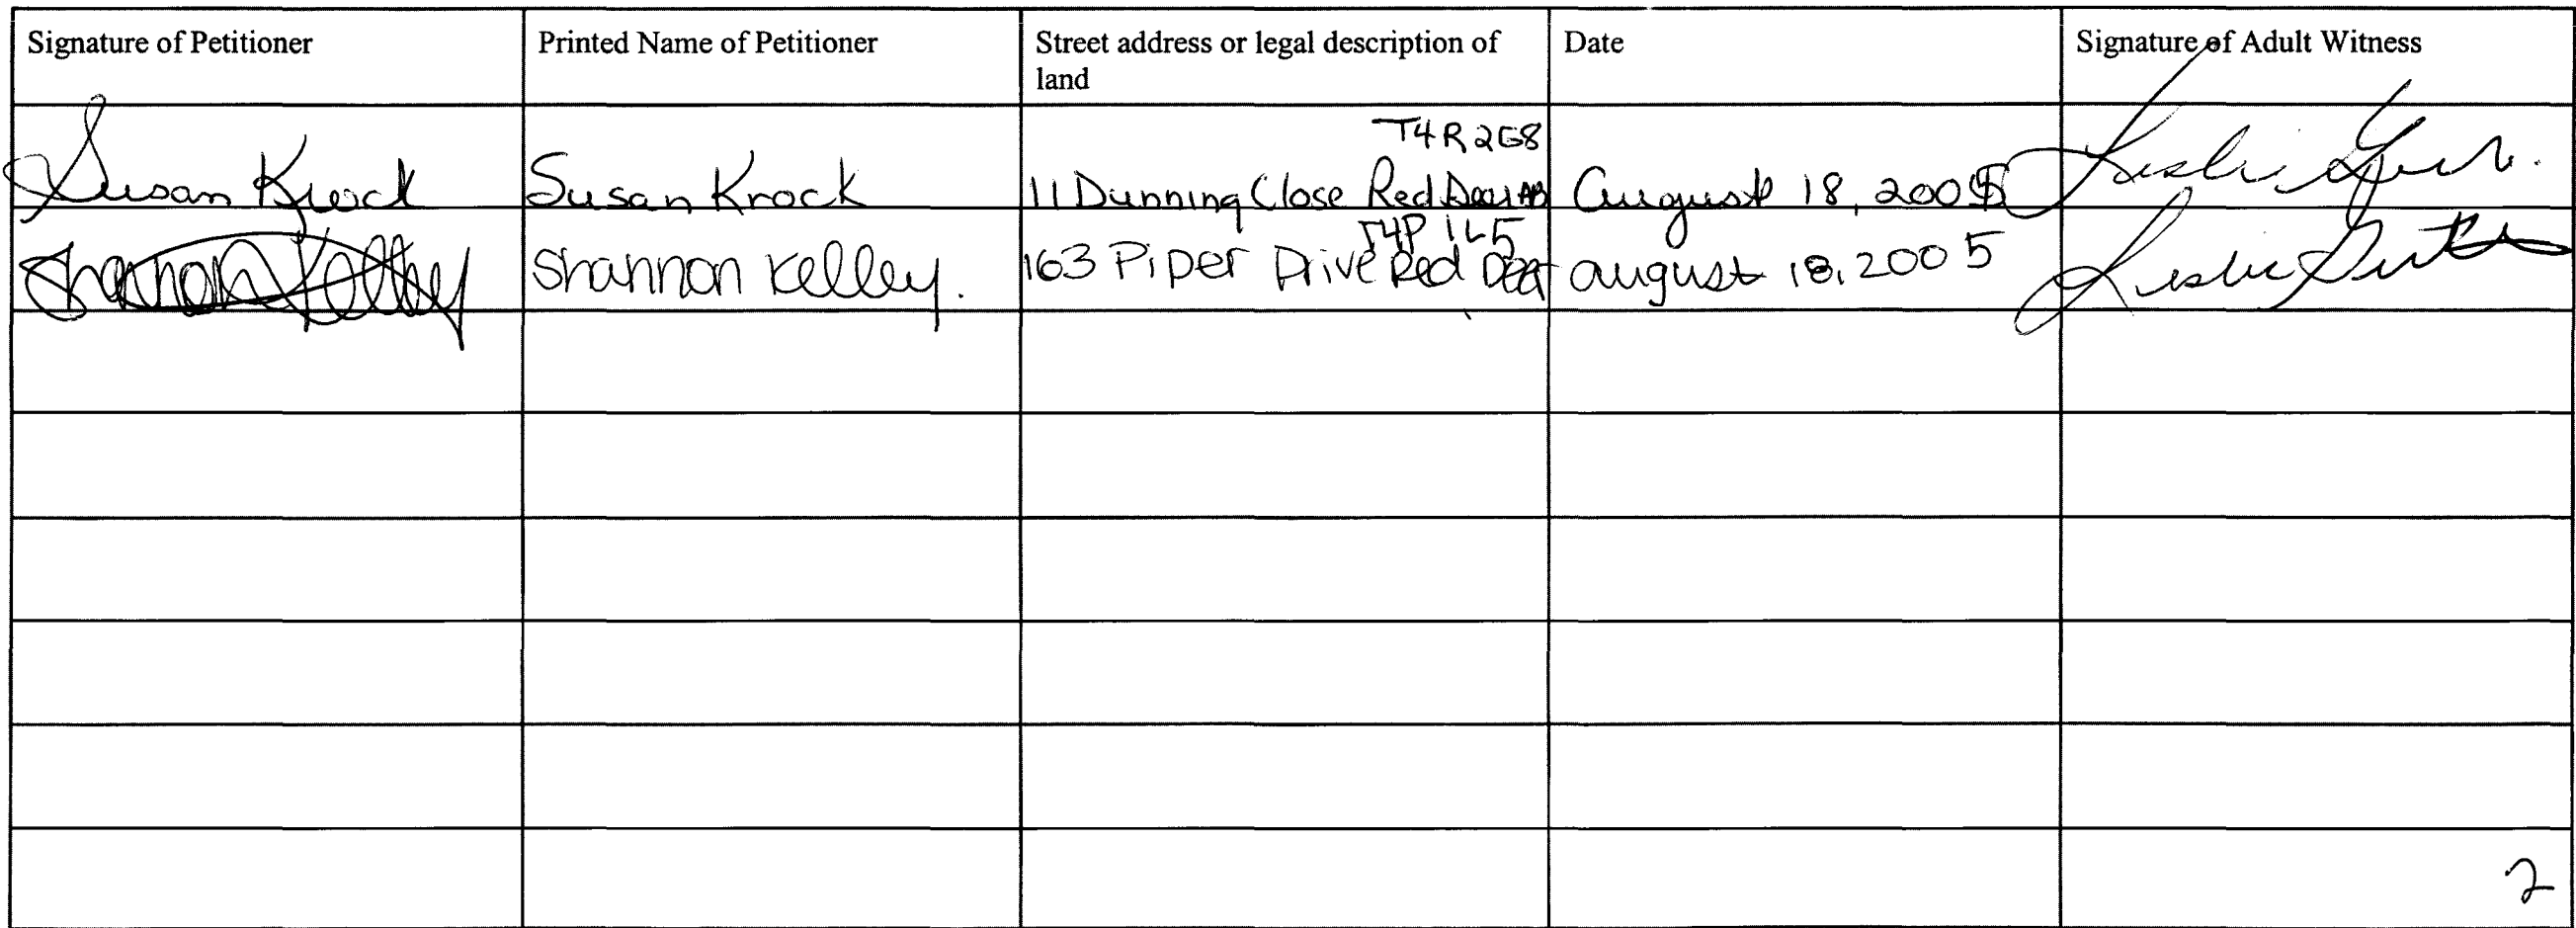 Signature of Petitioner
Printed Name of Petitioner
Street address or legal description of
land
Date
Signature of Adult Witness
T4R 2G8
Susan Krock
Susan Krock
11 Dunning Close Red Deer AB
August 18, 2005
Leslie
T4P 1L5
Shannon Kelley
Shannon Kelley.
163 Piper Drive Red Deer
August 18, 2005
Leslie
2